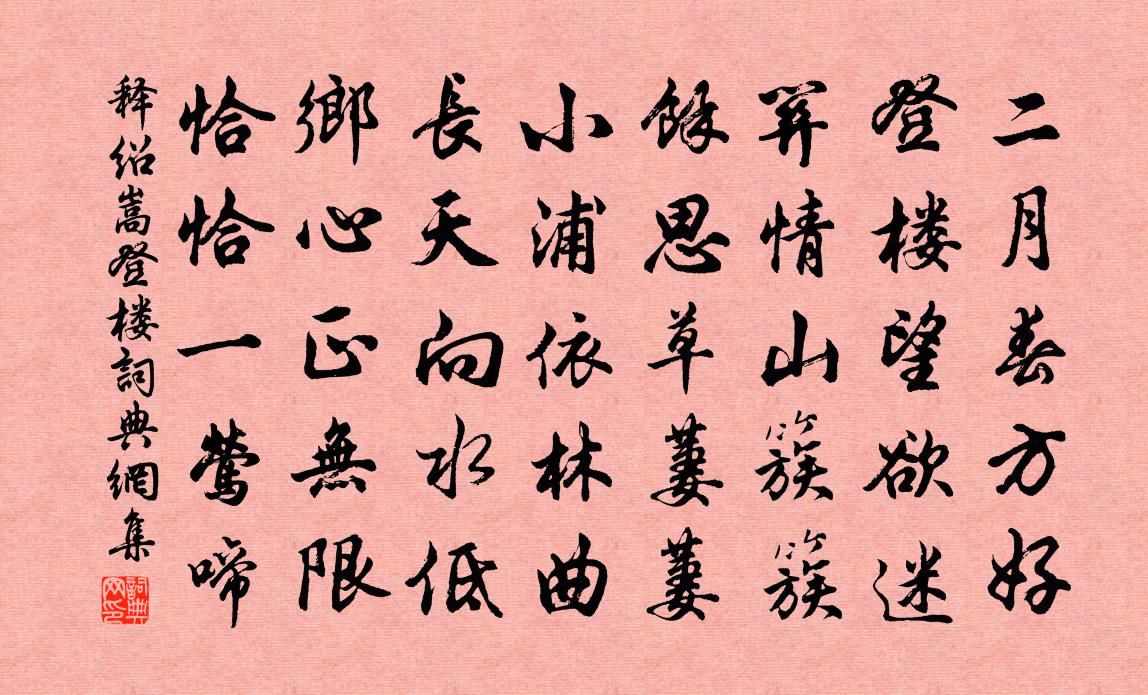 二月春方好
登楼望欲迷
關情山簇簇
餘思草萋萋
小浦依林曲
長天向水低
鄉心正無限
恰恰一鶯啼
释绍嵩登楼詞典網集
詞典网印